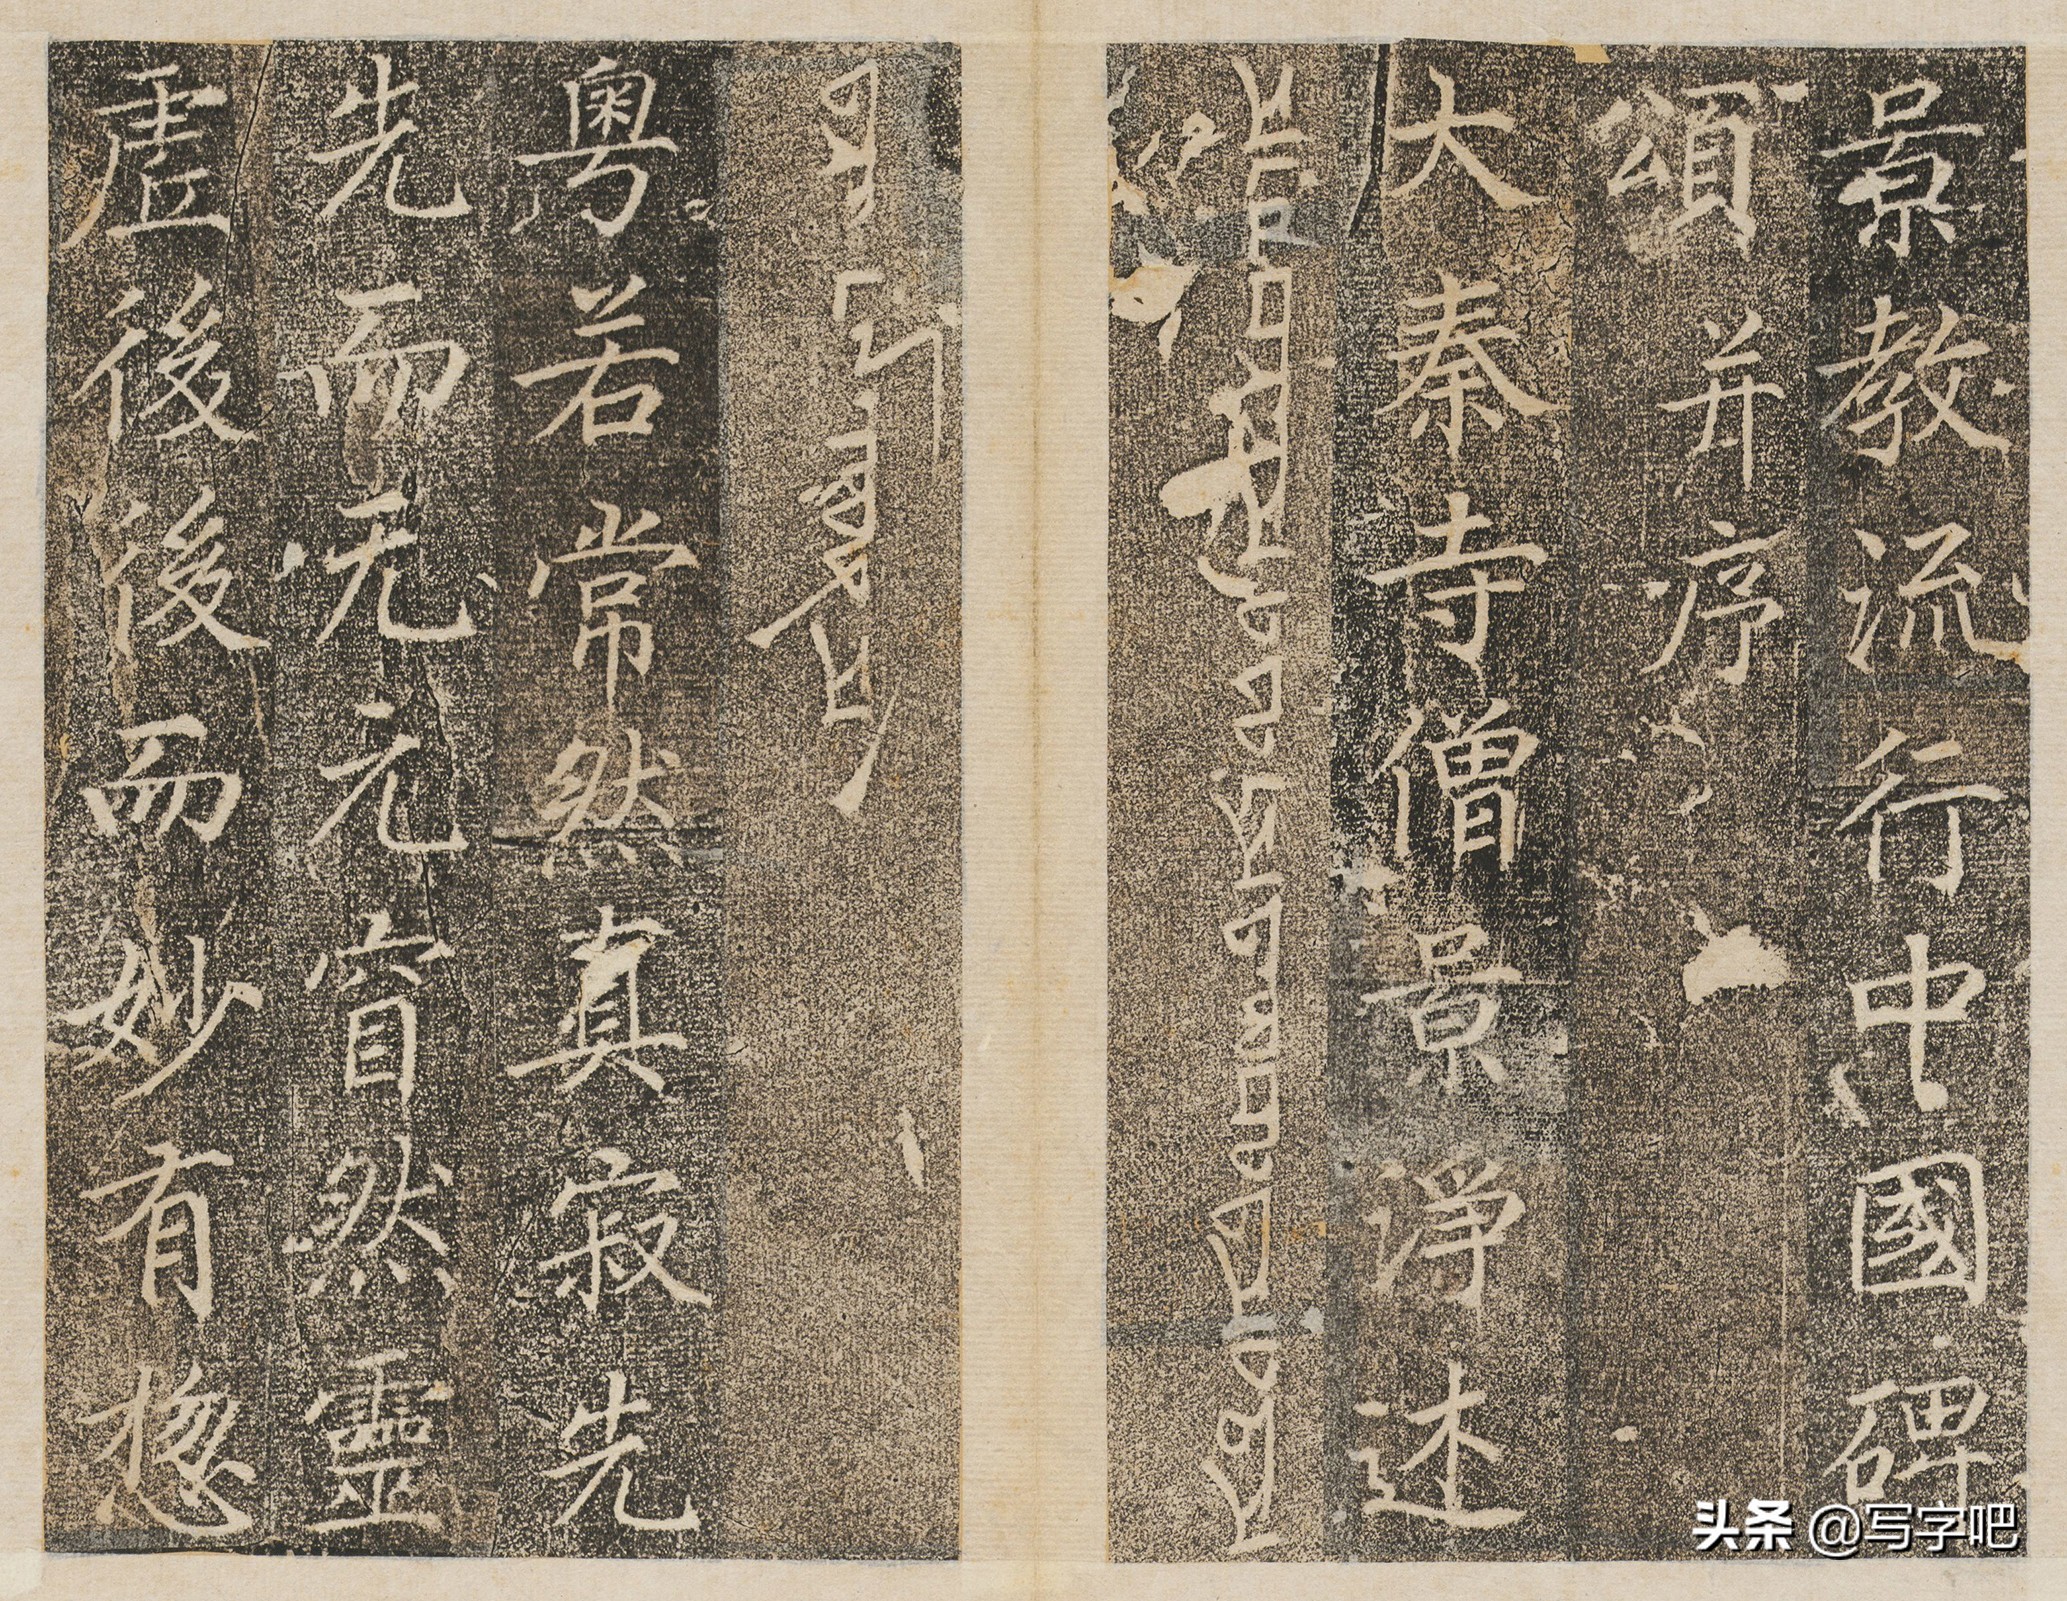 景教流行中國碑
頌并序
大秦寺僧景淨述
粵若常然真寂先
先而无元窅然靈
虛後後而妙有惣
头条 @写字吧